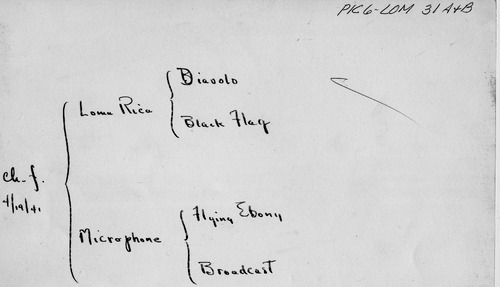 PIC6-LOM 31 A+B
Diavolo
Loma Rica
Black Flag
ch. f.
4/19/41
Flying Ebony
Microphone
Broadcast